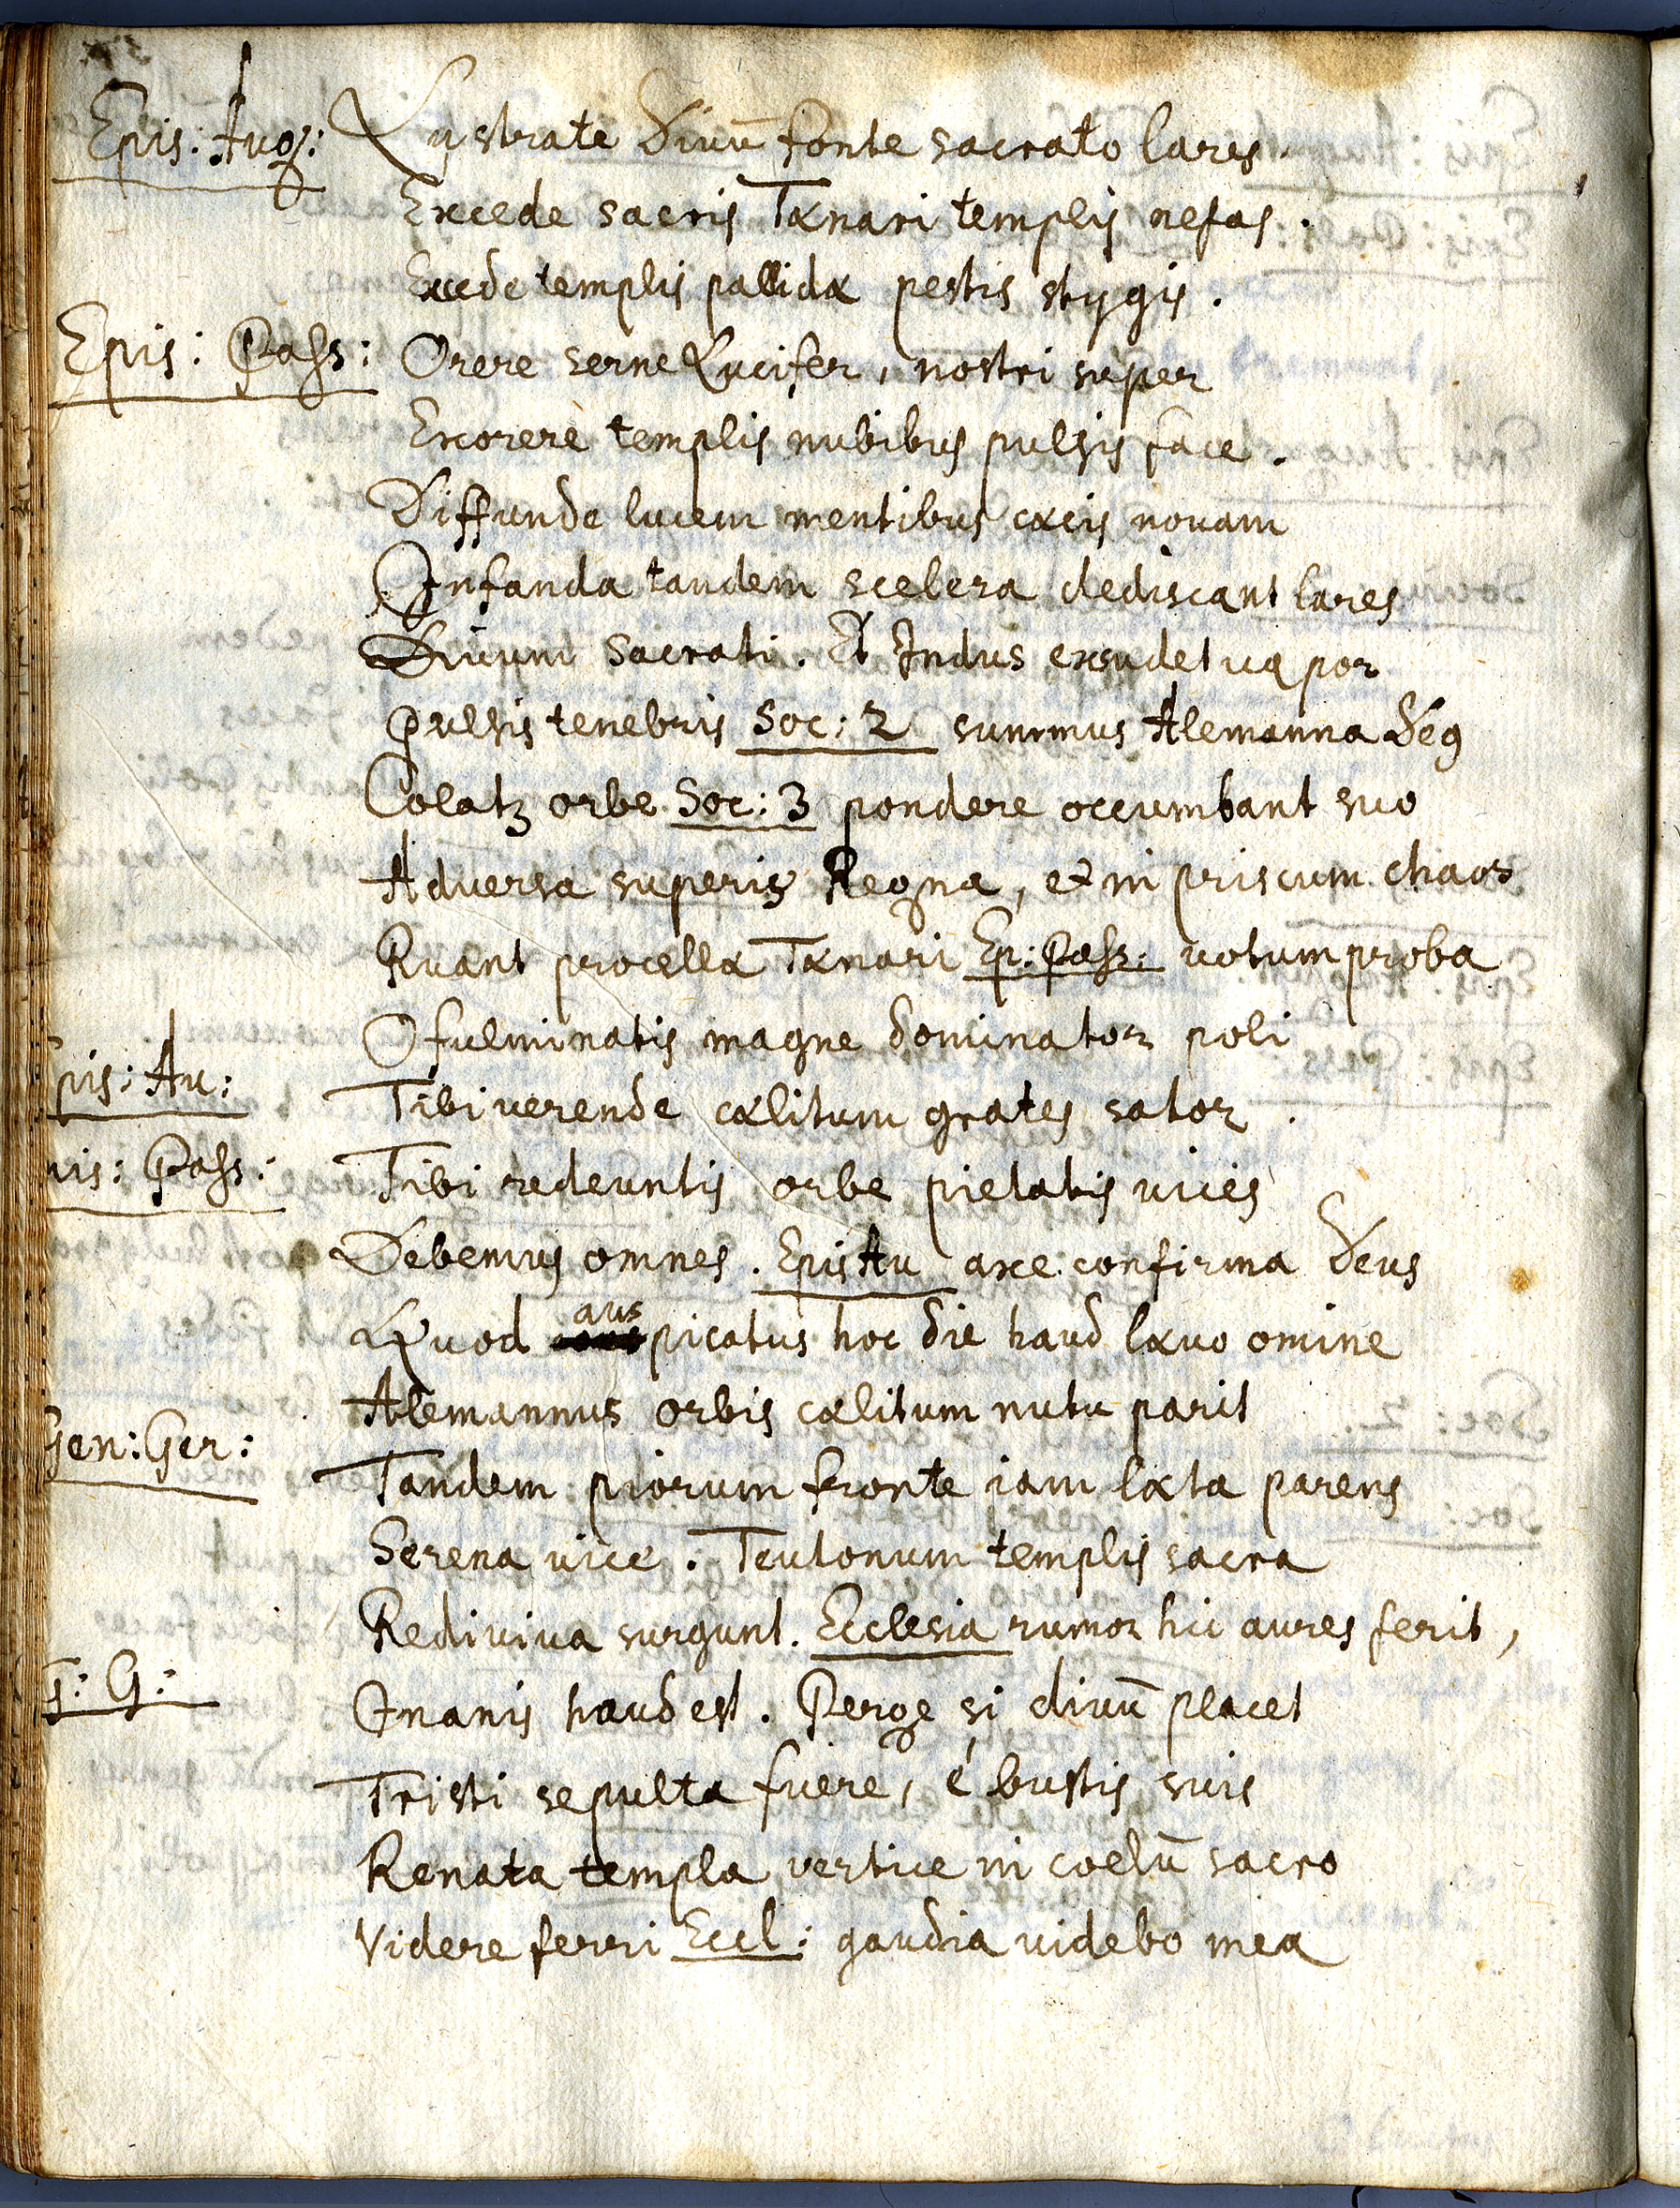 Epis: Aug: Lustrate Divũ fonte sacrato lares.
Excede sacris Tænari templis nefas.
Excede templis pallidæ pestis stygis.
Epis: Pass: Orere serne Lucifer, nostri super
Exorere templis nubibus pulsis face.
Diffunde lucem mentibus cæcis novam
Infanda tandem scelera dediscant lares
Divum sacrati. Et Indus exsudet
Pulsis tenebris Soc: 2 summus Alemanna Deq
Colatz orbe Soc: 3 pondere occumbant suo
Adversa superis Regna, et in priscum chaos
Ruant procella Tænari Ep: Pass: votum proba
O fulminatis magne dominator poli
Epis: Au: Tibi verende cælitum grates sator.
Epis: Pass: Tibi redeuntis orbe pietatis vices
Debemus omnes. Epis Au axe confirma Deus
Quod auspicatus hoc die haud lævo omine
Alemannus orbis cælitum nutu parit
Gen: Ger: Tandem piorum fronte iam læta parens
Serena vice. Teutonum templis sacra
Rediviva surgunt. Ecclesia rumor hic aures ferit,
G: G: Inanis haud est. Perge si divũ placet
Tristi sepulta fuere, é bustis suis
Renata templa vertice in coelũ sacro
Videre ferri Eccl: gaudia videbo mea